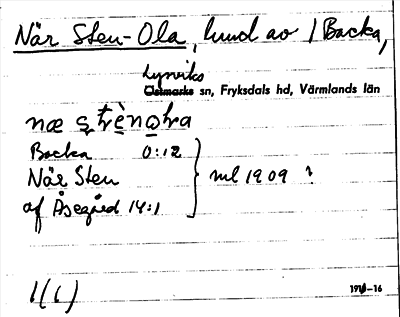 När Sten-Ola, hmd av / Backa,
Lysviks
Östmarks sn, Fryksdals hd, Värmlands län
næ strènoɷla
Backa 0:12
När Sten } ml 1909 ?
af Åsegård 14:1
1(1)
19-16